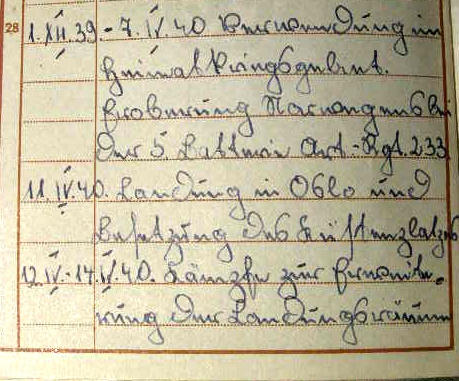 28 1.XII.39.-7.IV.40 Verwendung im
Heimatkriegsgebiet.
Eroberung Norwegens bei
der 5 Batterie Art.-Rgt. 233
11.IV.40. Landung in Oslo und
Besetzung des Küstenplatzes
12.IV.-14.IV.40. Kämpfe zur Erweite-
rung der Landungsräume